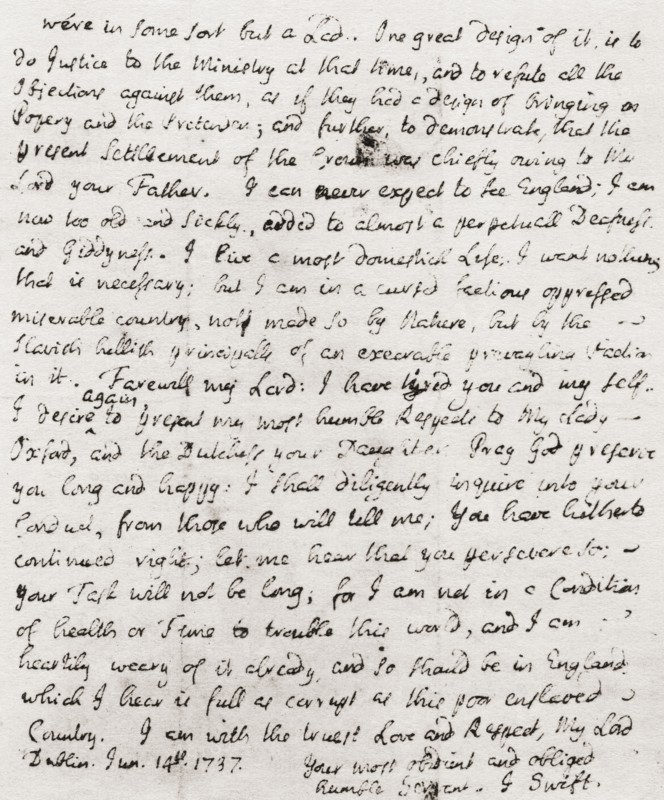 were in some sort but a Lad. One great design of it, is to
do Justice to the Ministry at that time, and to refute all the
Objections against them, as if they had a design of bringing in
Popery and the Pretender; and further, to demonstrate, that the
present Settlement of the Crown was chiefly owing to My
Lord your Father. I can never expect to see England; I am
now too old and sickly, added to almost a perpetuall Deafness
and Giddyness. I live a most domestick Life; I want nothing
that is necessary; but I am in a cursed factious oppressed
miserable country, not made so by Nature, but by the
slavish hellish principalls of an execrable prevayling Faction
in it. Farewell my Lord: I have tyred you and my self.
I desire again to present my most humble Respects to My Lady
Oxford, and the Dutchess your Daughter. Pray God preserve
you long and happy: I shall diligently inquire into your
Conduct, from those who will tell me; You have hitherto
continued right; let me hear that you persevere so;
your Task will not be long; for I am not in a Condition
of health or Time to trouble this world, and I am
heartily weary of it already, and so should be in England
which I hear is full as corrupt as this poor enslaved
Country. I am with the truest Love and Respect, My Lord
Dublin. Jun. 14th. 1737. Your most obedient and obliged
Humble Servant. J Swift.